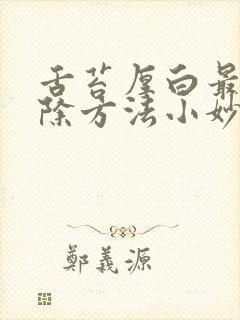 舌苔厚白最
除方法小妙
鄭義源